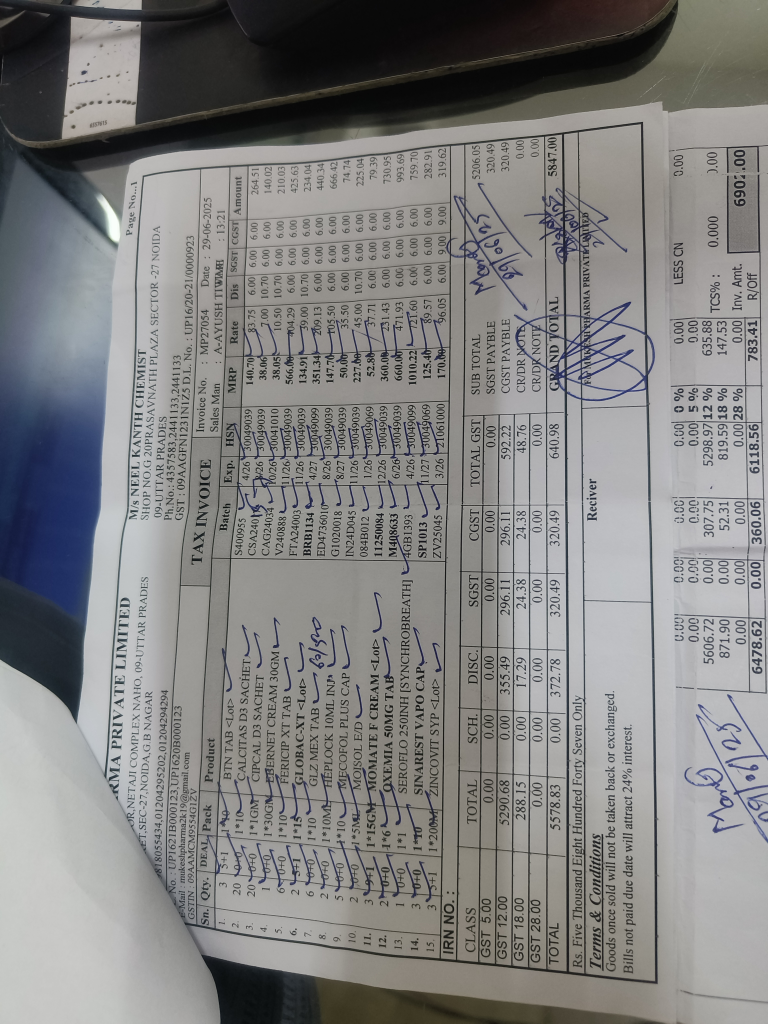 Page No...1
RMA PRIVATE LIMITED
OR, NETAJI COMPLEX NAHO, 09-UTTAR PRADES
ET,SEC-27,NOIDA,G B NAGAR
9818055434,01204295202,01204294294
No. : UP1621B000123,UP1620B000123
E-Mail : mukeshpharma2k19@gmail.com
GSTIN : 09AAMCM9554G1ZV
M/s NEEL KANTH CHEMIST
SHOP NO.G 20PRASAVNATH PLAZA SECTOR -27 NOIDA
09-UTTAR PRADES
Ph.No.: 4357583,2441133,2441133
GST : 09AAGFN1231N1Z5 D.L. No. : UP16/20-21/0000923
TAX INVOICE
Invoice No. : MP27054 Date : 29-06-2025
Sales Man : A-AYUSH TIWARI TIME : 13:21
Sn. Qty. DEAL Pack Product Batch Exp. HSN MRP Rate Dis SGST CGST Amount
1. 3 5+1 1*10 BTN TAB <Lot> S400955 4/26 30049039 140.70 83.75 6.00 6.00 6.00 264.51
2. 20 0+0 1*10 CALCITAS D3 SACHET 4/26 30049039 38.06 7.00 10.70 6.00 6.00 140.02
3. 20 0+0 1*1GM CIPCAL D3 SACHET 10/26 30041010 38.05 10.50 10.70 6.00 6.00 210.03
4. 1 0+0 1*30GM EBERNET CREAM 30GM V240888 11/26 30049039 404.29 6.00 6.00 6.00 425.63
5. 6 0+0 1*10 FERICIP XT TAB FTA24003 11/26 30049039 134.91 39.00 10.70 6.00 6.00 234.04
6. 2 5+1 1*15 GLOBAC-XT <Lot> BRB1134 4/27 30049099 351.34 209.13 6.00 6.00 6.00 440.34
7. 6 0+0 1*10 GLZ MEX TAB ED4736010 8/26 30049039 147.70 105.50 6.00 6.00 6.00 666.42
8. 2 0+0 1*10ML HEPLOCK 10ML INJ G1020018 8/27 30049039 35.50 6.00 6.00 6.00 74.74
9. 5 0+0 1*10 MECOFOL PLUS CAP IN24D045 11/26 30049039 45.00 10.70 6.00 6.00 225.04
10. 2 0+0 1*5ML MOISOL E/D 084B012 1/26 30049069 52.80 37.71 6.00 6.00 6.00 79.39
11. 3 9+1 1*15GM MOMATE F CREAM <Lot> 11250084 12/26 30049039 360.00 231.43 6.00 6.00 6.00 730.95
12. 2 0+0 1*6 OXEMIA 50MG TAB M408633 6/26 30049039 660.00 471.93 6.00 6.00 6.00 993.69
13. 1 0+0 1*1 SEROFLO 250INH [SYNCHROBREATH] 4GB1393 4/26 30049099 1010.22 721.60 6.00 6.00 6.00 759.70
14. 3 0+0 1*10 SINAREST VAPO CAP SP1013 11/27 30049069 125.40 89.57 6.00 6.00 6.00 282.91
15. 3 5+1 1*200ML ZINCOVIT SYP <Lot> ZV25045 3/26 21061000 96.05 6.00 9.00 9.00 319.62
IRN NO. :
CLASS TOTAL SCH. DISC. SGST CGST TOTAL GST
GST 5.00 0.00 0.00 0.00 0.00 0.00 0.00
GST 12.00 5290.68 0.00 355.49 296.11 296.11 592.22
GST 18.00 288.15 0.00 17.29 24.38 24.38 48.76
GST 28.00 0.00 0.00 0.00 0.00 0.00 0.00
TOTAL 5578.83 0.00 372.78 320.49 320.49 640.98
SUB TOTAL 5206.05
SGST PAYBLE 320.49
CGST PAYBLE 320.49
CR/DR NOTE 0.00
CR/DR NOTE 0.00
GRAND TOTAL 5847.00
29/06/25
Rs. Five Thousand Eight Hundred Forty Seven Only
Terms & Conditions
Goods once sold will not be taken back or exchanged.
Bills not paid due date will attract 24% interest.
Reciver
PHARMA PRIVATE LIMITED
0.00 0.00 0.00 0 % 0.00 LESS CN 0.00
0.00 0.00 0.00 5 % 0.00
5606.72 0.00 307.75 5298.97 12 % 635.88 TCS% : 0.000 0.00
871.90 0.00 52.31 819.59 18 % 147.53
0.00 0.00 0.00 0.00 28 % 0.00 Inv. Amt. 6902.00
6478.62 0.00 360.06 6118.56 783.41 R/Off 0.00